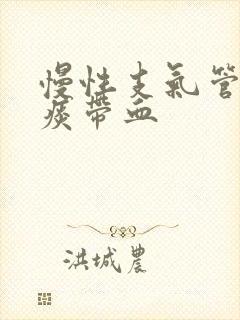 慢性支氣管
痰帶血
洪城農